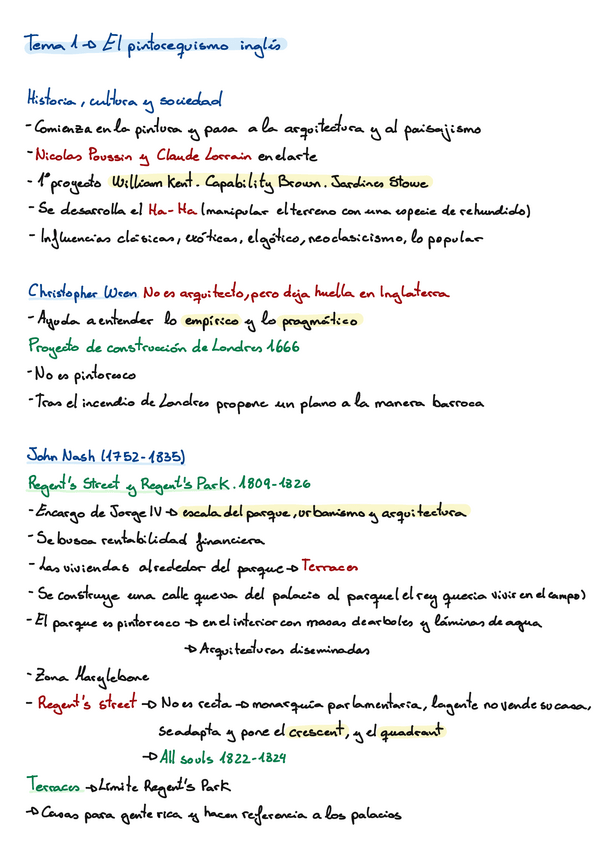 Tema 1 → El pintorequismo inglés
Historia, cultura y sociedad
- Comienza en la pintura y pasa a la arquitectura y al paisajismo
- Nicolas Poussin y Claude Lorrain en el arte
- 1º proyecto William Kent. Capability Brown. Jardines Stowe
- Se desarrolla el Ha-Ha (manipular el terreno con una especie de rehundido)
- Influencias clásicas, exóticas, el gótico, neoclasicismo, lo popular
Christopher Wren No es arquitecto, pero deja huella en Inglaterra
- Ayuda a entender lo empírico y lo pragmático
Proyecto de construcción de Londres 1666
- No es pintoresco
- Tras el incendio de Londres propone un plano a la manera barroca
John Nash (1752-1835)
Regent's Street y Regent's Park. 1809-1826
- Encargo de Jorge IV → escala del parque, urbanismo y arquitectura
- Se busca rentabilidad financiera
- Las viviendas alrededor del parque → Terraces
- Se construye una calle que va del palacio al parque (el rey quería vivir en el campo)
- El parque es pintoresco → en el interior con masas de arboles y láminas de agua
→ Arquitecturas diseminadas
- Zona Marylebone
- Regent's street → No es recta → monarquía parlamentaria, la gente no vende su casa,
se adapta y pone el crescent, y el quadrant
→ All souls 1822-1824
Terraces → Límite Regent's Park
→ Casas para gente rica y hacen referencia a los palacios